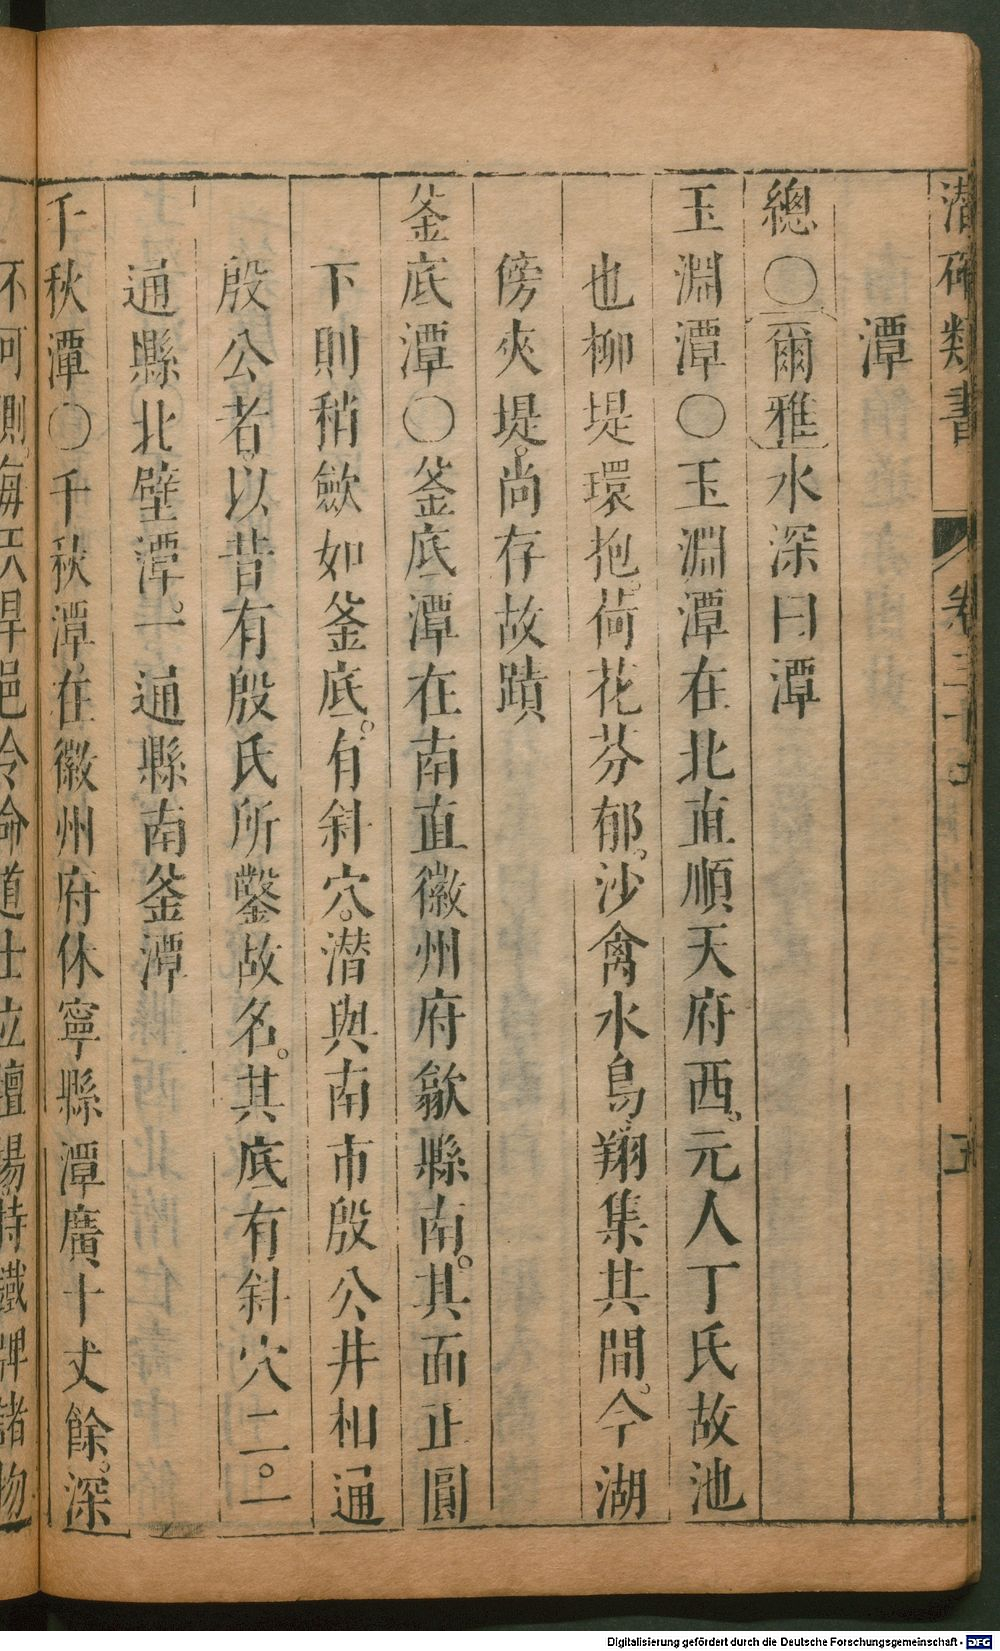 潛確類書
卷三十
五
潭
總〇爾雅水深曰潭
玉淵潭〇玉淵潭在北直順天府西元人丁氏故池
也柳堤環抱荷花芬郁沙禽水鳥翔集共間今湖
傍夾堤尚存故蹟
釜底潭〇釜底潭在南直徽州府歙縣南其面正圓
下則稍斂如釜底有斜穴潜與南市殷公井相通
殷公者以昔有殷氏所鑿故名其底有斜穴二一
通縣北壁潭一通縣南釜潭
千秋潭〇千秋潭在徽州府休寧縣潭廣十丈餘深
不可測每天旱邑令命道士立壇場持鐵牌諸物
Digitalisierung gefördert durch die Deutsche Forschungsgemeinschaft - DFG